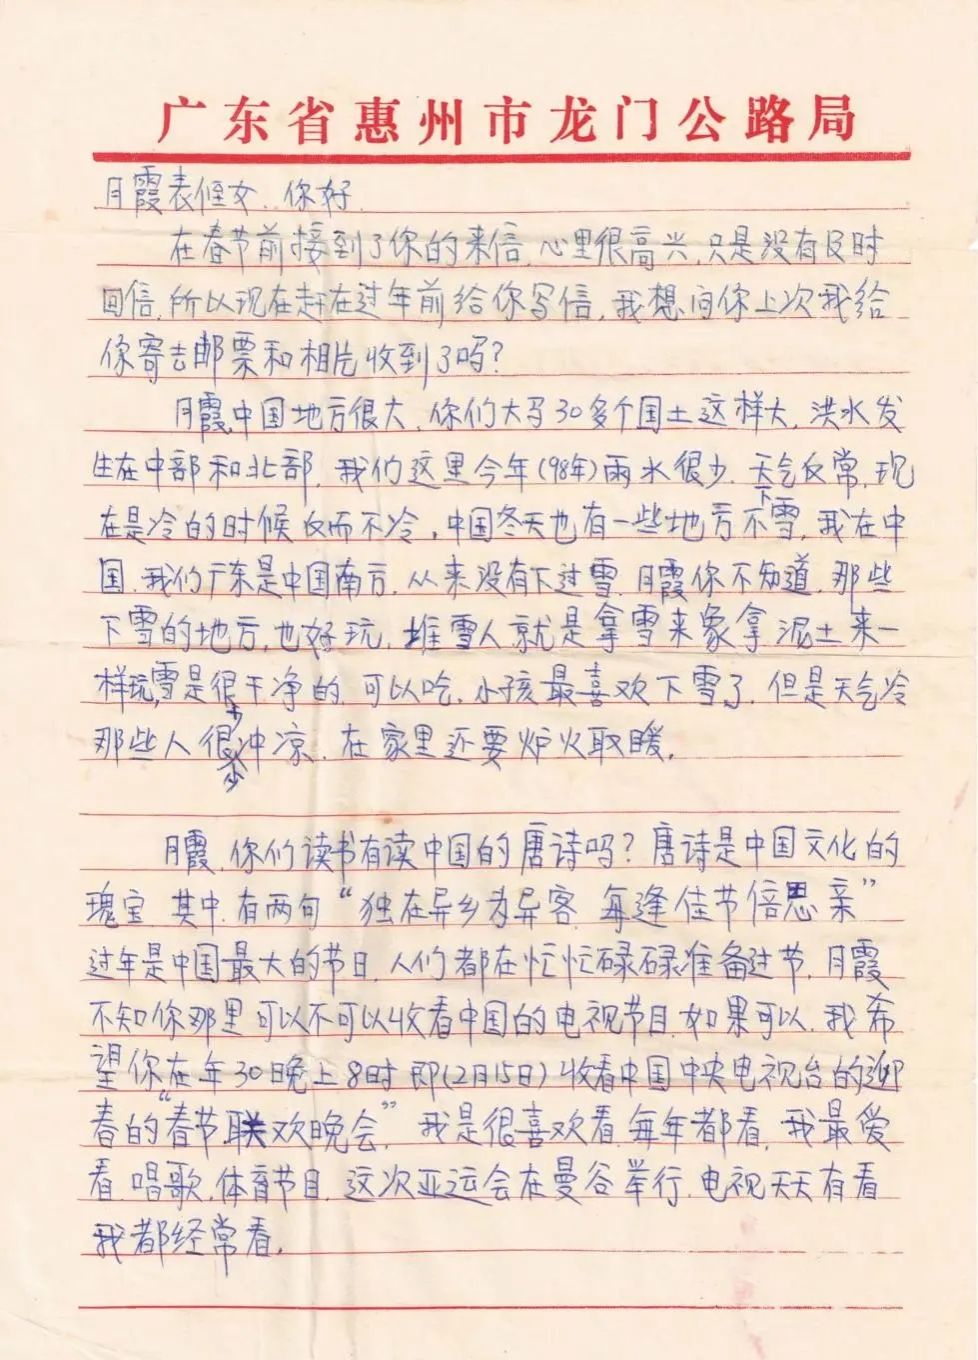 广东省惠州市龙门公路局
月霞表侄女. 你好.
在春节前接到了你的来信,心里很高兴,只是没有及时
回信,所以现在赶在过年前给你写信,我想问你上次我给
你寄去邮票和相片收到了吗?
月霞,中国地方很大,你们大马30多个国土这样大,洪水发
生在中部和北部,我们这里今年(98年)雨水很少.天气反常,现
在是冷的时候反而不冷,中国冬天也有一些地方不下雪,我在中
国,我们广东是中国南方,从来没有下过雪.月霞你不知道,那些
下雪的地方,也好玩,堆雪人就是拿雪来象拿泥土来一
样玩,雪是很干净的,可以吃,小孩最喜欢下雪了,但是天气冷
那些人很少冲凉,在家里还要炉火取暖.
月霞,你们读书有读中国的唐诗吗?唐诗是中国文化的
瑰宝 其中,有两句“独在异乡为异客,每逢佳节倍思亲”
过年是中国最大的节日,人们都在忙忙碌碌准备过节,月霞
不知你那里可以不可以收看中国的电视节目,如果可以,我希
望你在年30晚上8时即(2月15日)收看中国中央电视台的迎
春的“春节联欢晚会”,我是很喜欢看,每年都看,我最爱
看唱歌,体育节目,这次亚运会在曼谷举行,电视天天有看
我都经常看.